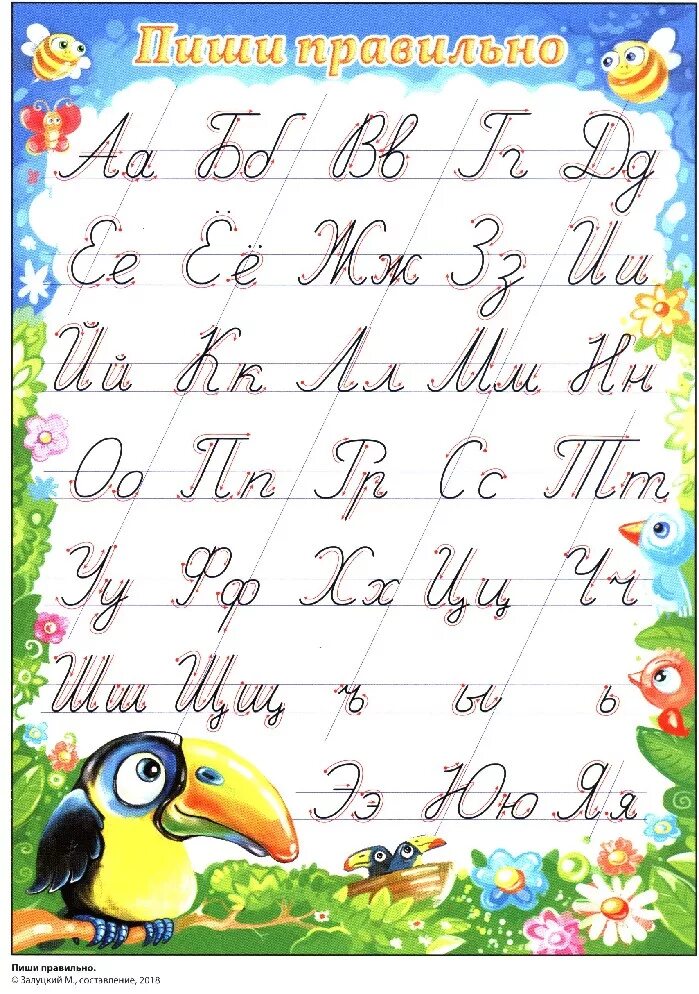 Пиши правильно
Аа Бб Вв Гг Дд
Ее Ёё Жж Зз Ии
Йй Кк Лл Мм Нн
Оо Пп Рр Сс Тт
Уу Фф Хх Цц Чч
Шш Щщ ъ ы ь
Ээ Юю Яя
Пиши правильно.
© Залуцкий М., составление, 2018